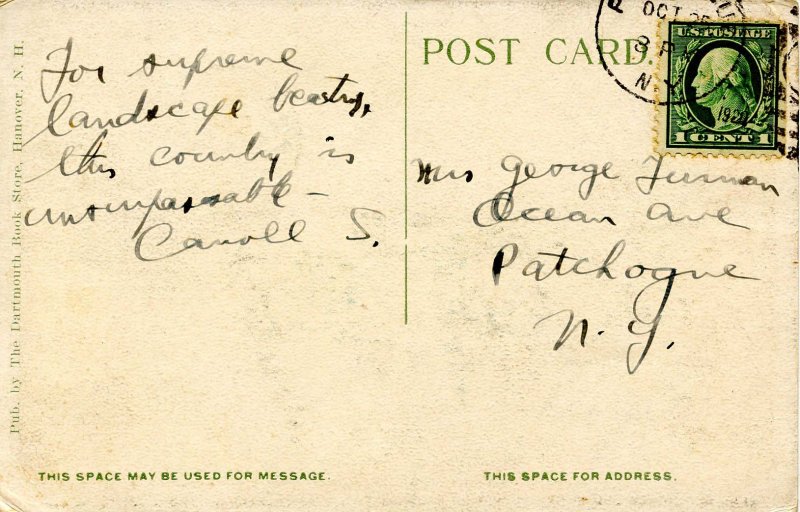 Pub. by The Dartmouth Book Store, Hanover, N. H.
For supreme
landscape beauty,
this country is
unsurpassable –
Carroll S.
THIS SPACE MAY BE USED FOR MESSAGE.
POST CARD.
OCT 25
8 P
N.Y.
1920
U.S. POSTAGE
1 CENT 1
Mrs George Furman
Ocean Ave
Patchogue
N. Y.
THIS SPACE FOR ADDRESS.